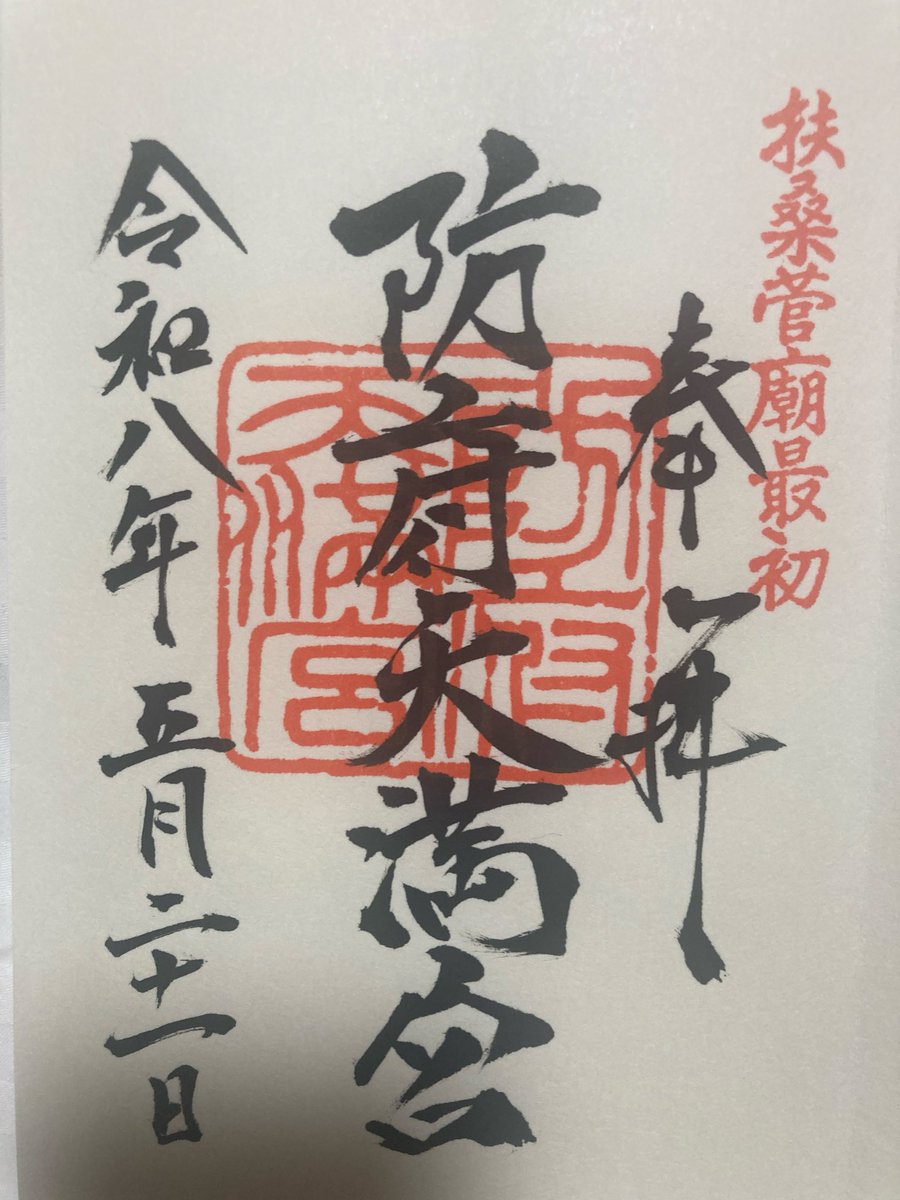 扶桑菅廟最初
奉拝
防府天満宮
令和八年五月二十一日
防府天満宮